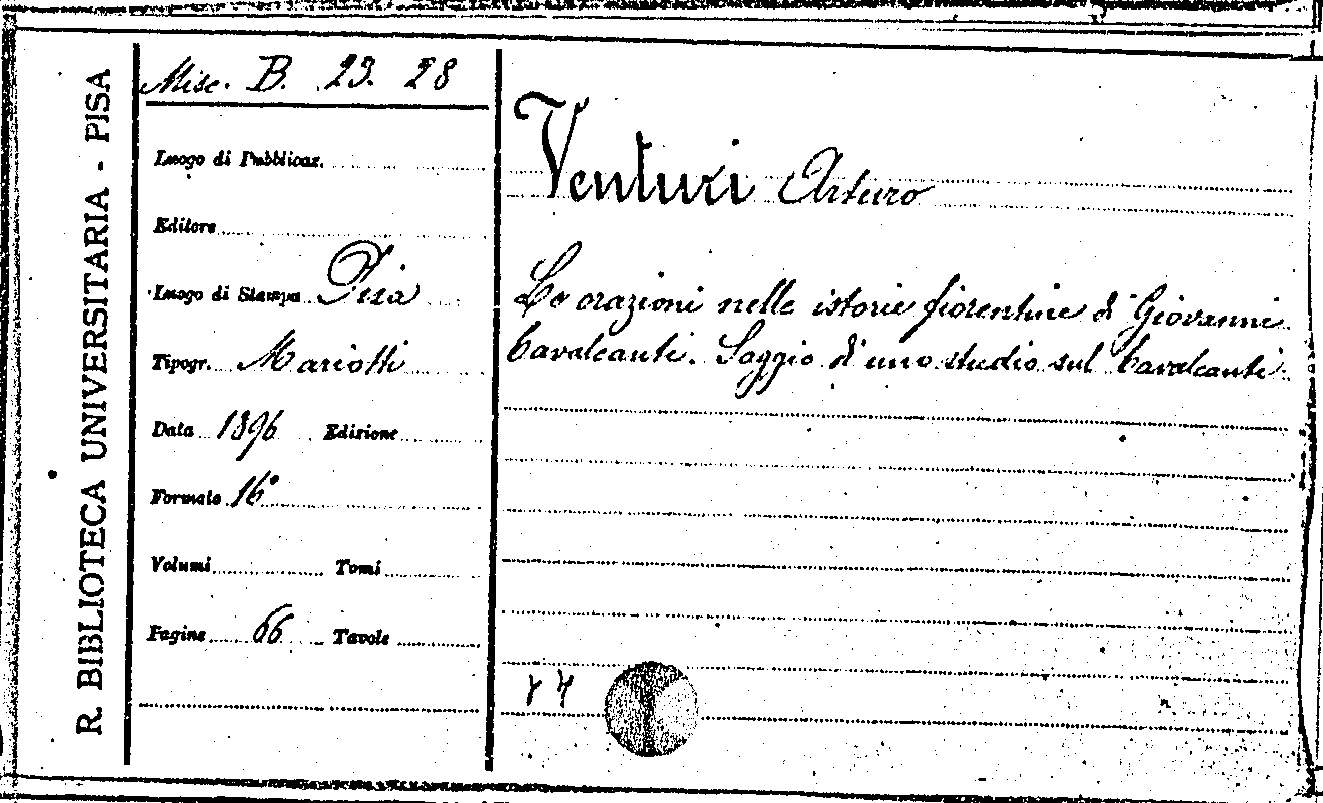 R. BIBLIOTECA UNIVERSITARIA - PISA
Misc. B. 23. 28
Luogo di Pubblicaz.
Editore
Luogo di Stampa Pisa
Tipogr. Mariotti
Data 1896 Edizione
Formato 16°
Volumi Tomi
Pagine 66 Tavole
Venturi Arturo
Le orazioni nelle istorie fiorentine di Giovanni
Cavalcanti. Saggio di uno studio sul Cavalcanti